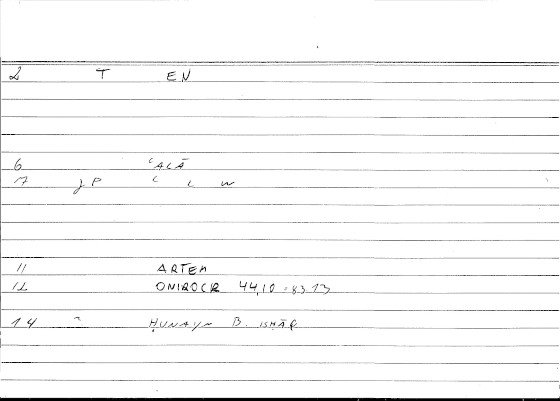 2 T EN
6 ʿALĀ
7 JP ʿ L W
11 ARTEM
12 ONIROCR 44,10 = 83 13
14 ḤUNAYN B. ISḤĀQ